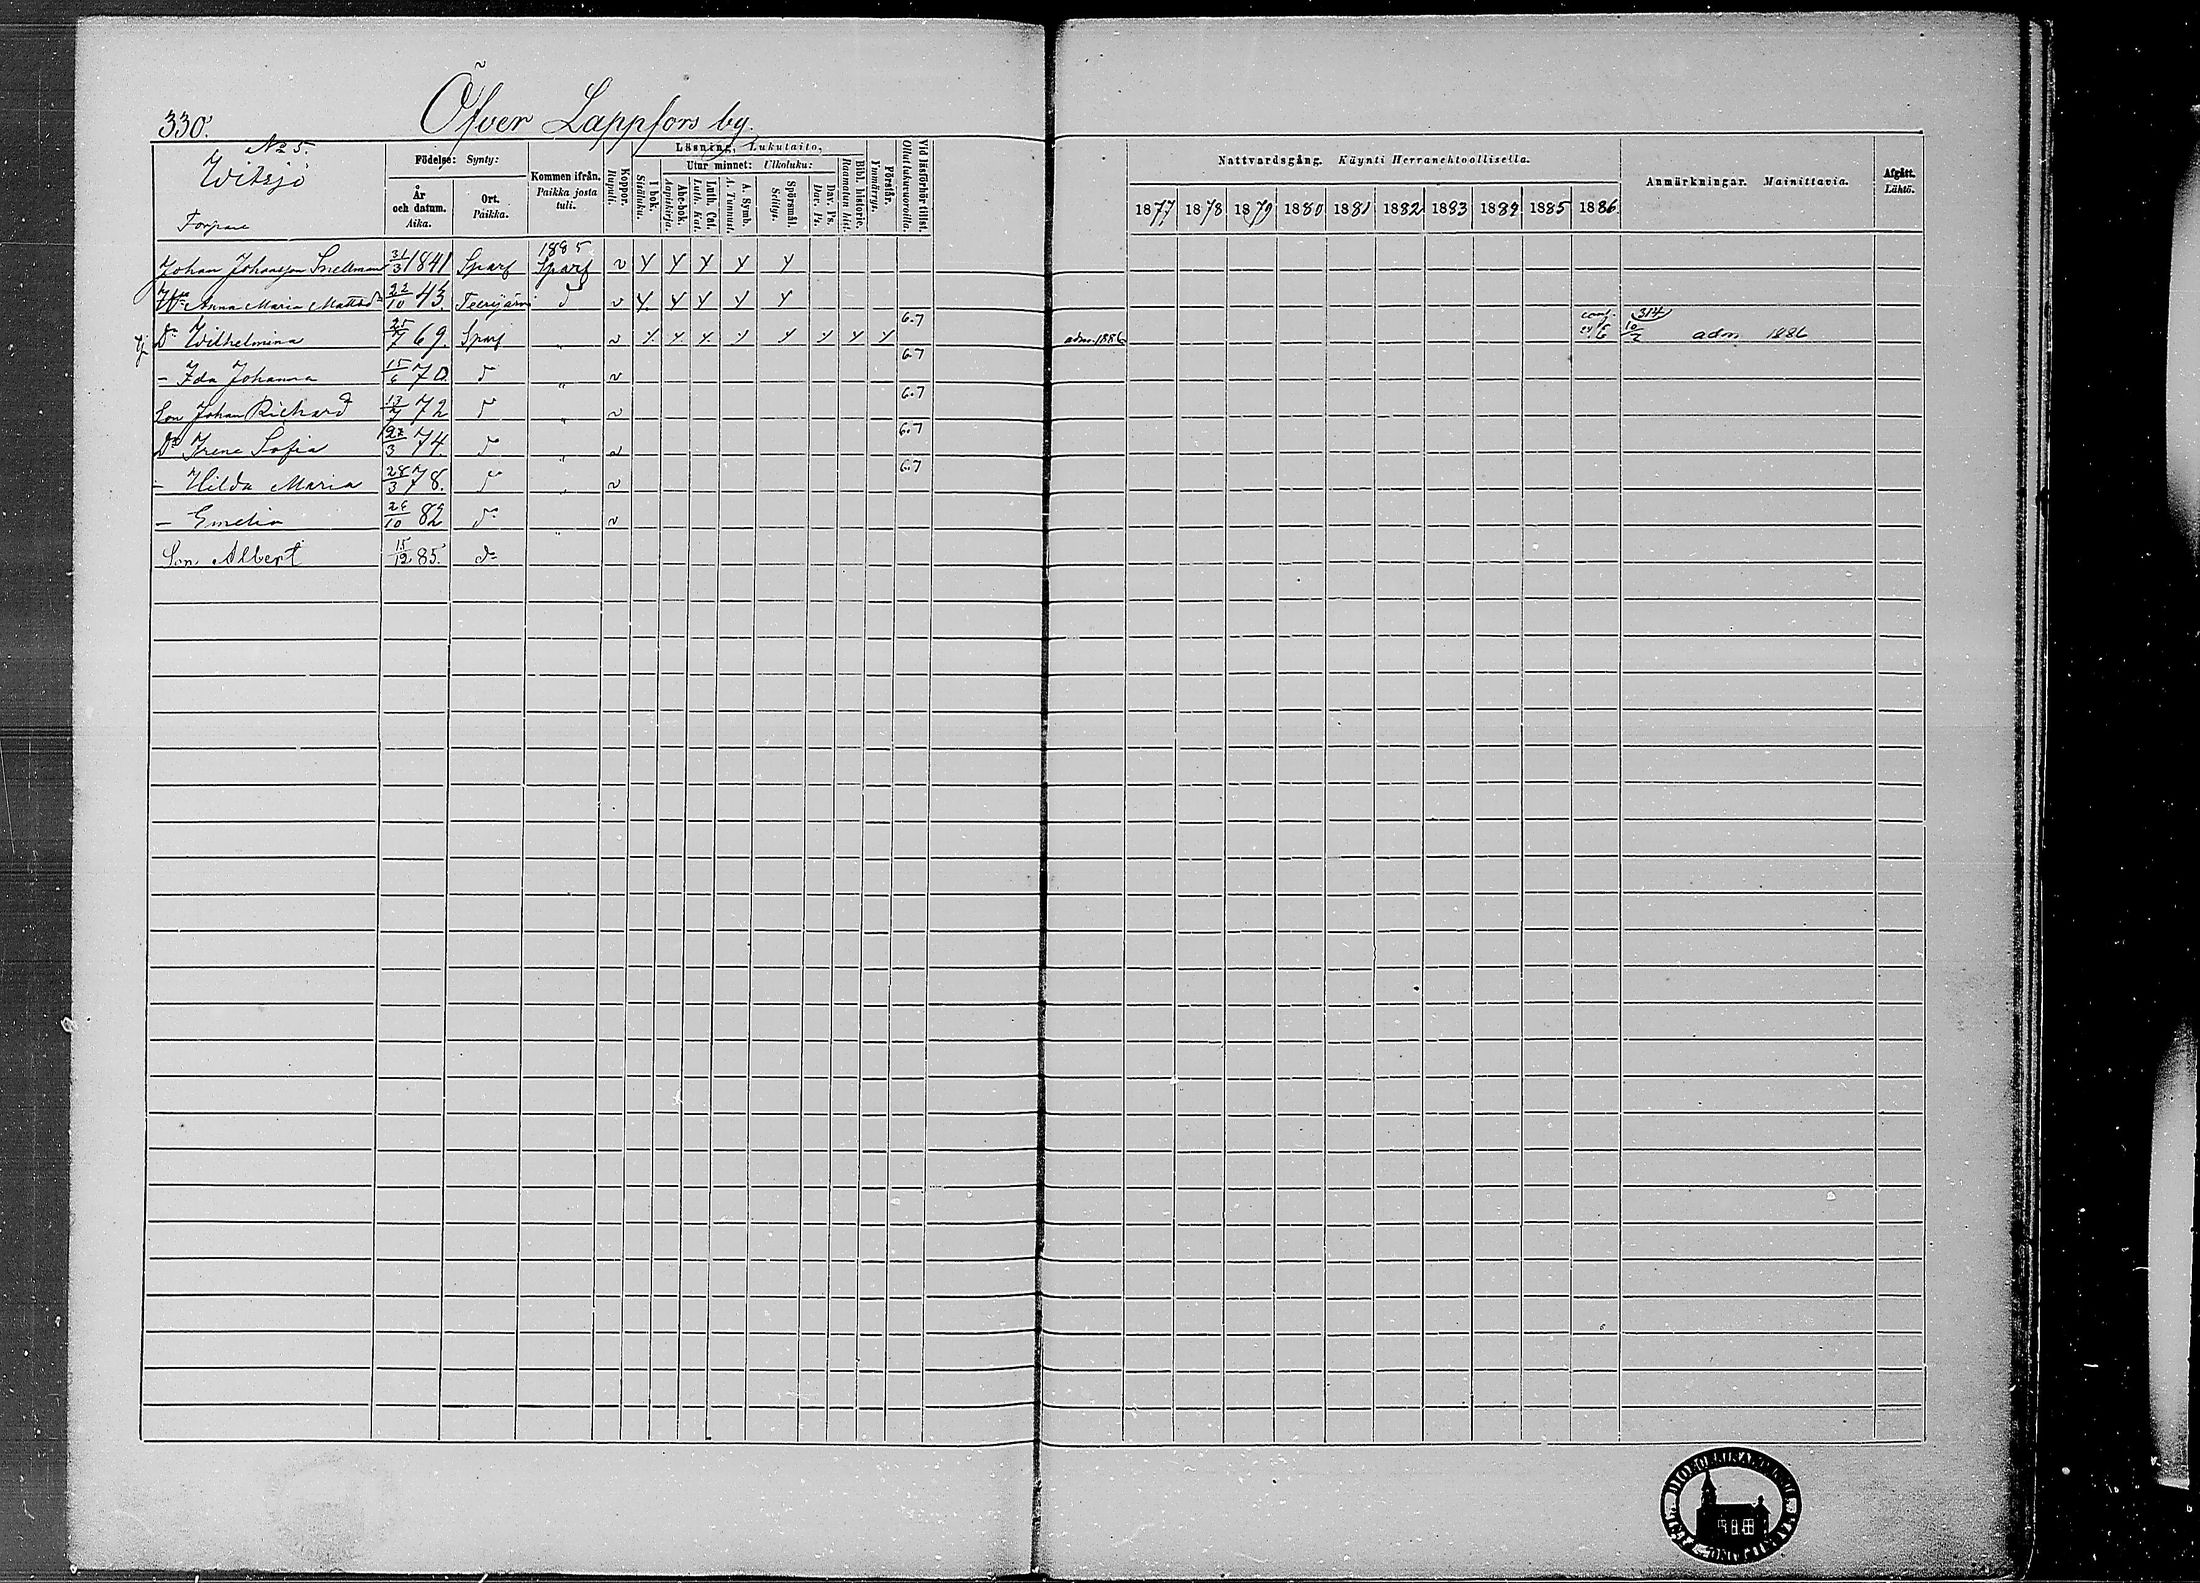 330.
Öfver Lappfors by.
No 5.
Witsjö
Torpare
Födelse: Synty:
År och datum. Aika.
Ort. Paikka.
Kommen ifrån. Paikka josta tuli.
Koppor. Rupuli.
Läsning, Lukutaito.
I bok. Sisäluku.
Utur minnet: Ulkoluku:
Abc-bok. Aapiskirja.
Luth. Cat. Luth. Kat.
A. Symb. A. Tunnust.
Spörsmål. Selitys.
Dav. Ps. Dav. Ps.
Bibl. historie. Raamatun hist.
Förstår. Ymmärrys.
Vid läsförhör tillst. Ollut lukuvuoroilla.
Nattvardsgång. Käynti Herranehtoollisella.
1877 1878 1879 1880 1881 1882 1883 1884 1885 1886
Anmärkningar. Mainittavia.
Afgått. Lähtö.
1885
Johan Johansson Snellman 31/3 1841 Sparf Sparf v y y y y y
Hu Anna Maria Mattsd 22/10 43. Teerijärvi d v y y y y y
Dr Wilhelmina 25/7 69. Sparf " v y y y y y y y y 6.7 adm. 1886 conf. 314 10/2 adm 1886
- Ida Johanna 15/6 70. d " v 6.7
Son Johan Richard 13/7 72 d " v 6.7
Dr Irene Sofia 27/3 74. d " v 6.7
- Hilda Maria 28/3 78. d " v 6.7
- Emelia 26/10 82 do " v
Son Albert 15/12 85. do